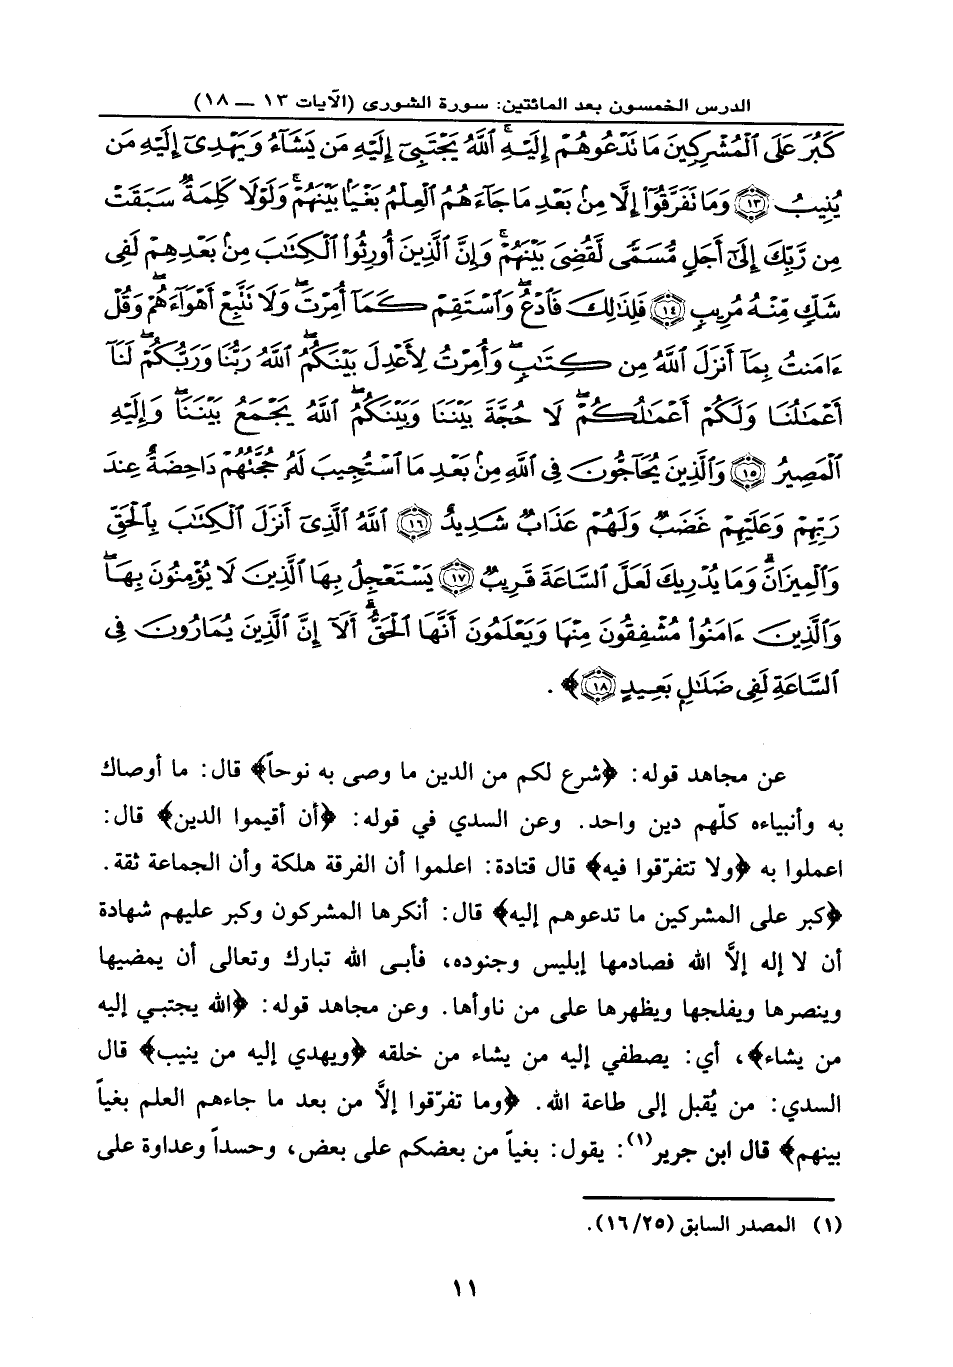 الدرس الخمسون بعد المائتين: سورة الشورى (الآيات ١٣ — ١٨)
كَبُرَ عَلَى ٱلْمُشْرِكِينَ مَا نَدْعُوهُمْ إِلَيْهِ ۚ ٱللَّهُ يَجْتَبِىٓ إِلَيْهِ مَن يَشَآءُ وَيَهْدِىٓ إِلَيْهِ مَن
يُنِيبُ ﴿١٣﴾ وَمَا نَفَرَّقُوٓا۟ إِلَّا مِنۢ بَعْدِ مَا جَآءَهُمُ ٱلْعِلْمُ بَغْيًۢا بَيْنَهُمْ ۚ وَلَوْلَا كَلِمَةٌ سَبَقَتْ
مِن رَّبِّكَ إِلَىٰٓ أَجَلٍ مُّسَمًّى لَّقُضِىَ بَيْنَهُمْ ۚ وَإِنَّ ٱلَّذِينَ أُورِثُوا۟ ٱلْكِتَٰبَ مِنۢ بَعْدِهِمْ لَفِى
شَكٍّ مِّنْهُ مُرِيبٍ ﴿١٤﴾ فَلِذَٰلِكَ فَٱدْعُ ۖ وَٱسْتَقِمْ كَمَآ أُمِرْتَ ۖ وَلَا نَتَّبِعْ أَهْوَآءَهُمْ ۖ وَقُلْ
ءَامَنتُ بِمَآ أَنزَلَ ٱللَّهُ مِن كِتَٰبٍ ۖ وَأُمِرْتُ لِأَعْدِلَ بَيْنَكُمُ ۖ ٱللَّهُ رَبُّنَا وَرَبُّكُمْ ۖ لَنَآ
أَعْمَٰلُنَا وَلَكُمْ أَعْمَٰلُكُمْ ۖ لَا حُجَّةَ بَيْنَنَا وَبَيْنَكُمُ ۖ ٱللَّهُ يَجْمَعُ بَيْنَنَا ۖ وَإِلَيْهِ
ٱلْمَصِيرُ ﴿١٥﴾ وَٱلَّذِينَ يُحَآجُّونَ فِى ٱللَّهِ مِنۢ بَعْدِ مَا ٱسْتُجِيبَ لَهُۥ حُجَّتُهُمْ دَاحِضَةٌ عِندَ
رَبِّهِمْ وَعَلَيْهِمْ غَضَبٌ وَلَهُمْ عَذَابٌ شَدِيدٌ ﴿١٦﴾ ٱللَّهُ ٱلَّذِىٓ أَنزَلَ ٱلْكِتَٰبَ بِٱلْحَقِّ
وَٱلْمِيزَانَ ۗ وَمَا يُدْرِيكَ لَعَلَّ ٱلسَّاعَةَ قَرِيبٌ ﴿١٧﴾ يَسْتَعْجِلُ بِهَا ٱلَّذِينَ لَا يُؤْمِنُونَ بِهَا ۖ
وَٱلَّذِينَ ءَامَنُوا۟ مُشْفِقُونَ مِنْهَا وَيَعْلَمُونَ أَنَّهَا ٱلْحَقُّ ۗ أَلَآ إِنَّ ٱلَّذِينَ يُمَارُونَ فِى
ٱلسَّاعَةِ لَفِى ضَلَٰلٍۭ بَعِيدٍ ﴿١٨﴾﴾ .
عن مجاهد قوله: ﴿شرع لكم من الدين ما وصى به نوحاً﴾ قال: ما أوصاك
به وأنبياءه كلّهم دين واحد. وعن السدي في قوله: ﴿أن أقيموا الدين﴾ قال:
اعملوا به ﴿ولا تتفرّقوا فيه﴾ قال قتادة: اعلموا أن الفرقة هلكة وأن الجماعة ثقة.
﴿كبر على المشركين ما تدعوهم إليه﴾ قال: أنكرها المشركون وكبر عليهم شهادة
أن لا إله إلاَّ الله فصادمها إبليس وجنوده، فأبى الله تبارك وتعالى أن يمضيها
وينصرها ويفلجها ويظهرها على من ناوأها. وعن مجاهد قوله: ﴿الله يجتبي إليه
من يشاء﴾، أي: يصطفي إليه من يشاء من خلقه ﴿ويهدي إليه من ينيب﴾ قال
السدي: من يُقبل إلى طاعة الله. ﴿وما تفرّقوا إلاَّ من بعد ما جاءهم العلم بغياً
بينهم﴾ قال ابن جرير(١): يقول: بغياً من بعضكم على بعض، وحسداً وعداوة على
(١) المصدر السابق (١٦/٢٥).
١١